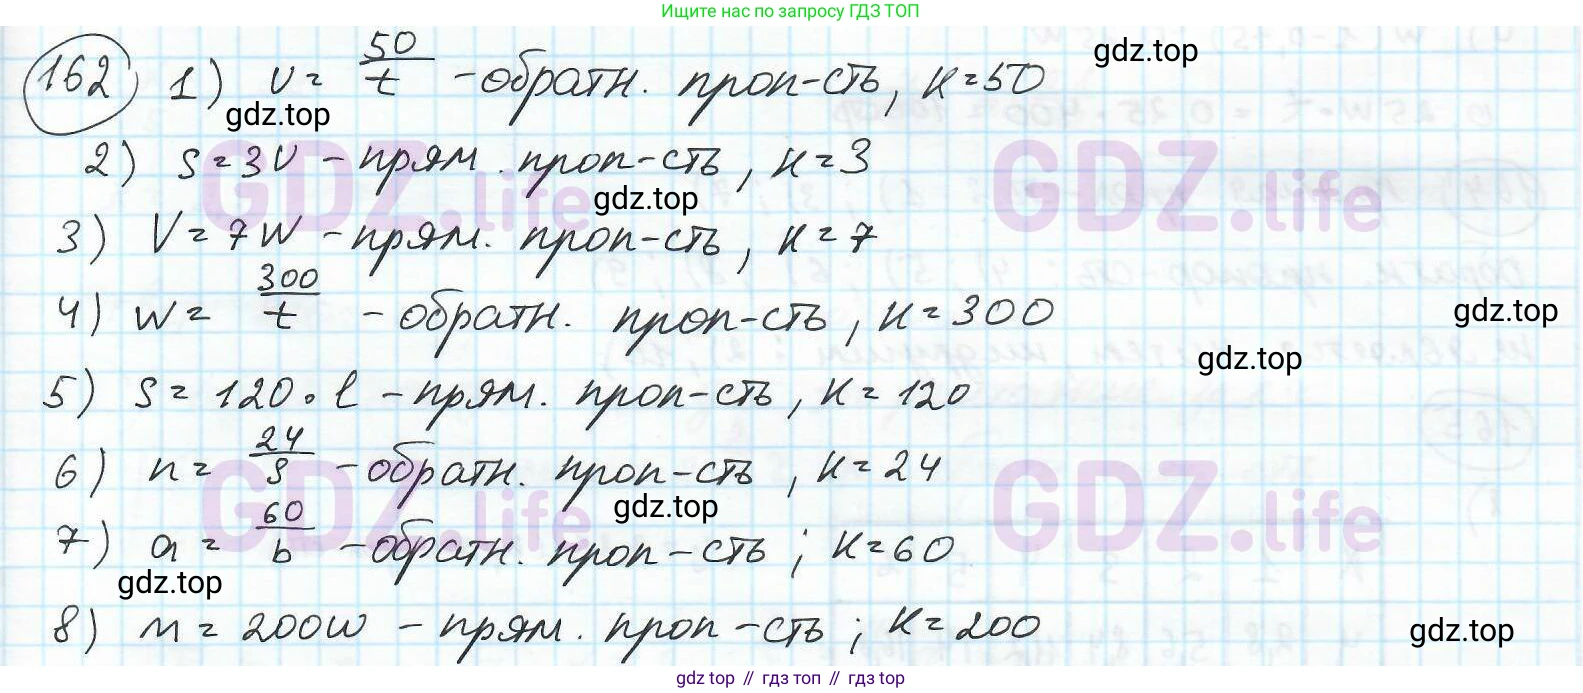 Ищите нас по запросу ГДЗ ТОП
162 1) v = 50/t - обратн. проп-сть, к=50
gdz.top
gdz.top
2) s=3v - прям. проп-сть, к=3
GDZ.life GDZ.life
gdz.top
3) V=7w - прям. проп-сть, к=7
4) w= 300/t - обратн. проп-сть, к=300
gdz.top
gdz.top
5) s= 120·l - прям. проп-сть, к=120
6) n= 24/s - обратн. проп-сть, к=24
GDZ.life GDZ.life
gdz.top
7) a= 60/b - обратн. проп-сть; к=60
gdz.top
8) m=200w - прям. проп-сть; к=200
gdz.top
gdz top // гдз топ // gdz.top